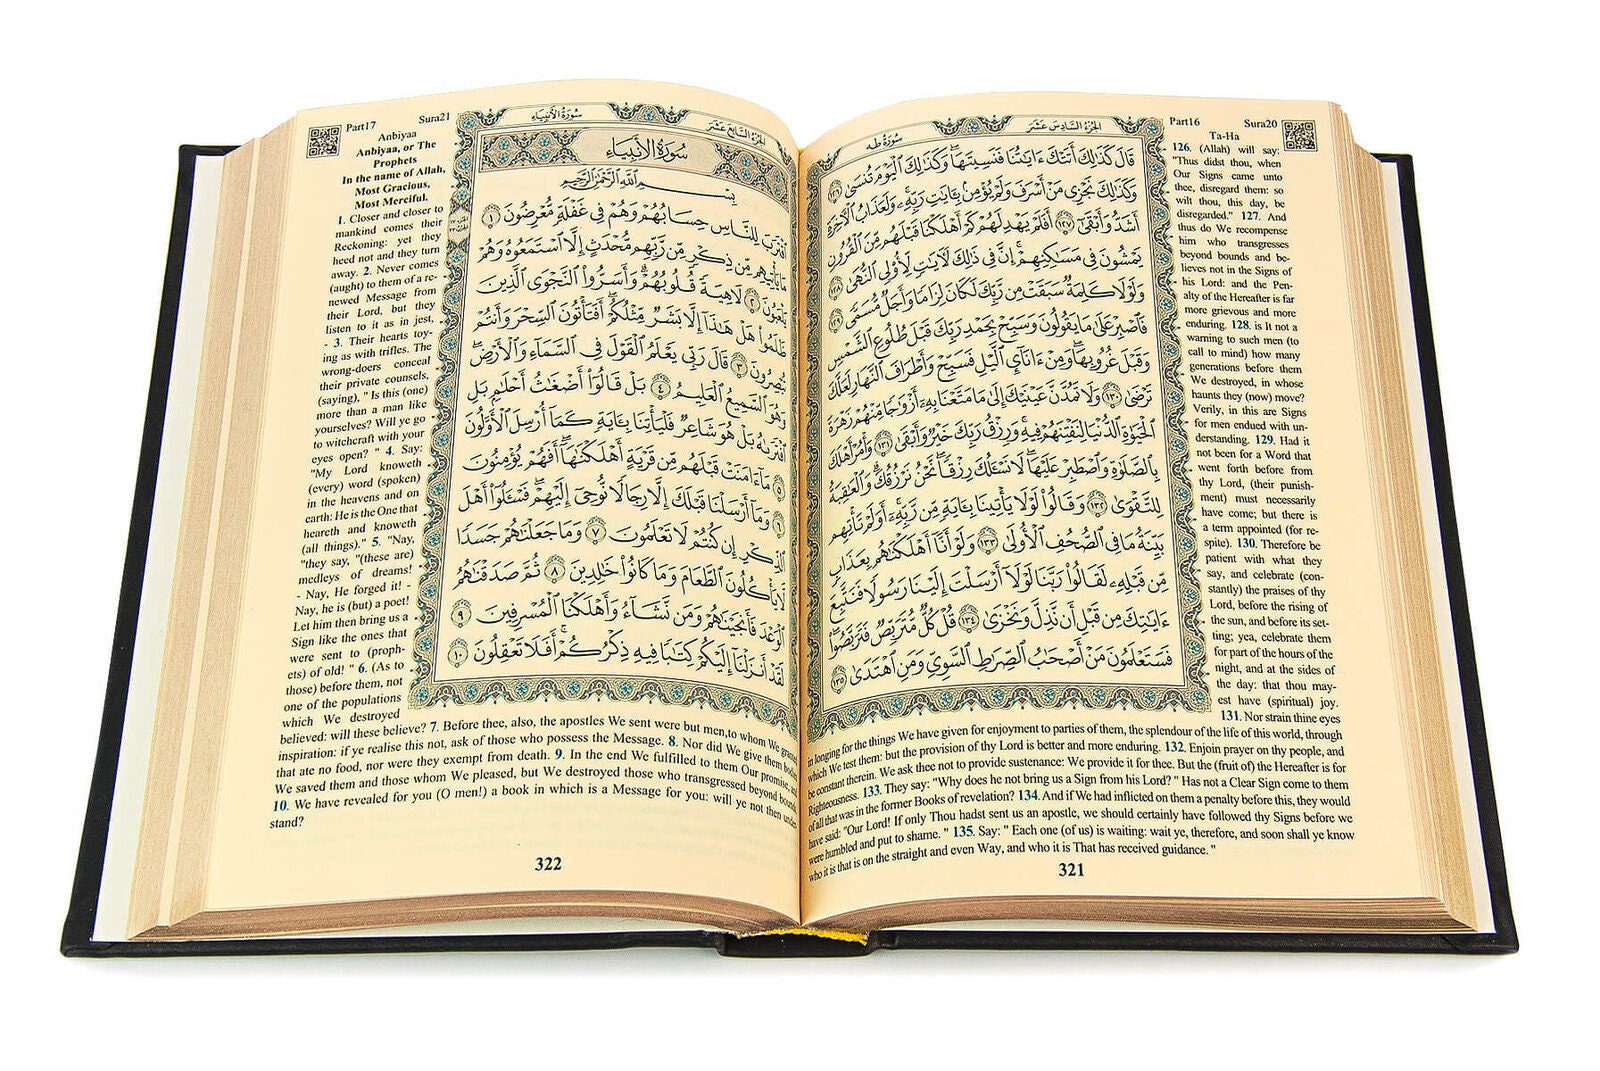 Part16 Sura20
Ta-Ha
126. (Allah) will say:
"Thus didst thou, when
Our Signs came unto
thee, disregard them: so
wilt thou, this day, be
disregarded." 127. And
thus do We recompense
him who transgresses
beyond bounds and be-
lieves not in the Signs of
his Lord: and the Pen-
alty of the Hereafter is far
more grievous and more
enduring. 128. is It not a
warning to such men (to
call to mind) how many
generations before them
We destroyed, in whose
haunts they (now) move?
Verily, in this are Signs
for men endued with un-
derstanding. 129. Had it
not been for a Word that
went forth before from
thy Lord, (their punish-
ment) must necessarily
have come; but there is
a term appointed (for re-
spite). 130. Therefore be
patient with what they
say, and celebrate (con-
stantly) the praises of thy
Lord, before the rising of
the sun, and before its set-
ting; yea, celebrate them
for part of the hours of the
night, and at the sides of
the day: that thou may-
est have (spiritual) joy.
131. Nor strain thine eyes
in longing for the things We have given for enjoyment to parties of them, the splendour of the life of this world, through
which We test them: but the provision of thy Lord is better and more enduring. 132. Enjoin prayer on thy people, and
be constant therein. We ask thee not to provide sustenance: We provide it for thee. But the (fruit of) the Hereafter is for
Righteousness. 133. They say: "Why does he not bring us a Sign from his Lord? " Has not a Clear Sign come to them
of all that was in the former Books of revelation? 134. And if We had inflicted on them a penalty before this, they would
have said: "Our Lord! If only Thou hadst sent us an apostle, we should certainly have followed thy Signs before we
were humbled and put to shame. " 135. Say: " Each one (of us) is waiting: wait ye, therefore, and soon shall ye know
who it is that is on the straight and even Way, and who it is That has received guidance. "
321
الجزء السادس عشر سورة طه
قَالَ كَذَٰلِكَ أَتَتْكَ ءَايَٰتُنَا فَنَسِيتَهَا ۖ وَكَذَٰلِكَ ٱلْيَوْمَ تُنسَىٰ ١٢٦
وَكَذَٰلِكَ نَجْزِى مَنْ أَسْرَفَ وَلَمْ يُؤْمِنۢ بِـَٔايَٰتِ رَبِّهِۦ ۚ وَلَعَذَابُ ٱلْءَاخِرَةِ
أَشَدُّ وَأَبْقَىٰٓ ١٢٧ أَفَلَمْ يَهْدِ لَهُمْ كَمْ أَهْلَكْنَا قَبْلَهُم مِّنَ ٱلْقُرُونِ
يَمْشُونَ فِى مَسَٰكِنِهِمْ ۗ إِنَّ فِى ذَٰلِكَ لَءَايَٰتٍ لِّأُو۟لِى ٱلنُّهَىٰ ١٢٨
وَلَوْلَا كَلِمَةٌ سَبَقَتْ مِن رَّبِّكَ لَكَانَ لِزَامًا وَأَجَلٌ مُّسَمًّى ١٢٩
فَٱصْبِرْ عَلَىٰ مَا يَقُولُونَ وَسَبِّحْ بِحَمْدِ رَبِّكَ قَبْلَ طُلُوعِ ٱلشَّمْسِ
وَقَبْلَ غُرُوبِهَا ۖ وَمِنْ ءَانَآئِ ٱلَّيْلِ فَسَبِّحْ وَأَطْرَافَ ٱلنَّهَارِ لَعَلَّكَ
تَرْضَىٰ ١٣٠ وَلَا تَمُدَّنَّ عَيْنَيْكَ إِلَىٰ مَا مَتَّعْنَا بِهِۦٓ أَزْوَٰجًا مِّنْهُمْ زَهْرَةَ
ٱلْحَيَوٰةِ ٱلدُّنْيَا لِنَفْتِنَهُمْ فِيهِ ۚ وَرِزْقُ رَبِّكَ خَيْرٌ وَأَبْقَىٰ ١٣١ وَأْمُرْ أَهْلَكَ
بِٱلصَّلَوٰةِ وَٱصْطَبِرْ عَلَيْهَا ۖ لَا نَسْـَٔلُكَ رِزْقًا ۖ نَّحْنُ نَرْزُقُكَ ۗ وَٱلْعَٰقِبَةُ
لِلتَّقْوَىٰ ١٣٢ وَقَالُوا۟ لَوْلَا يَأْتِينَا بِـَٔايَةٍ مِّن رَّبِّهِۦٓ ۚ أَوَلَمْ تَأْتِهِم
بَيِّنَةُ مَا فِى ٱلصُّحُفِ ٱلْأُولَىٰ ١٣٣ وَلَوْ أَنَّآ أَهْلَكْنَٰهُم بِعَذَابٍ
مِّن قَبْلِهِۦ لَقَالُوا۟ رَبَّنَا لَوْلَآ أَرْسَلْتَ إِلَيْنَا رَسُولًا فَنَتَّبِعَ
ءَايَٰتِكَ مِن قَبْلِ أَن نَّذِلَّ وَنَخْزَىٰ ١٣٤ قُلْ كُلٌّ مُّتَرَبِّصٌ فَتَرَبَّصُوا۟ ۖ
فَسَتَعْلَمُونَ مَنْ أَصْحَٰبُ ٱلصِّرَٰطِ ٱلسَّوِىِّ وَمَنِ ٱهْتَدَىٰ ١٣٥
الجزء السابع عشر سورة الأنبياء
سورة الأنبياء
بِسْمِ ٱللَّهِ ٱلرَّحْمَٰنِ ٱلرَّحِيمِ
ٱقْتَرَبَ لِلنَّاسِ حِسَابُهُمْ وَهُمْ فِى غَفْلَةٍ مُّعْرِضُونَ ١
مَا يَأْتِيهِم مِّن ذِكْرٍ مِّن رَّبِّهِم مُّحْدَثٍ إِلَّا ٱسْتَمَعُوهُ وَهُمْ
يَلْعَبُونَ ٢ لَاهِيَةً قُلُوبُهُمْ ۗ وَأَسَرُّوا۟ ٱلنَّجْوَى ٱلَّذِينَ
ظَلَمُوا۟ هَلْ هَٰذَآ إِلَّا بَشَرٌ مِّثْلُكُمْ ۖ أَفَتَأْتُونَ ٱلسِّحْرَ وَأَنتُمْ
تُبْصِرُونَ ٣ قَالَ رَبِّى يَعْلَمُ ٱلْقَوْلَ فِى ٱلسَّمَآءِ وَٱلْأَرْضِ ۖ
وَهُوَ ٱلسَّمِيعُ ٱلْعَلِيمُ ٤ بَلْ قَالُوٓا۟ أَضْغَٰثُ أَحْلَٰمٍۭ بَلِ
ٱفْتَرَىٰهُ بَلْ هُوَ شَاعِرٌ فَلْيَأْتِنَا بِـَٔايَةٍ كَمَآ أُرْسِلَ ٱلْأَوَّلُونَ
٥ مَآ ءَامَنَتْ قَبْلَهُم مِّن قَرْيَةٍ أَهْلَكْنَٰهَآ ۖ أَفَهُمْ يُؤْمِنُونَ
٦ وَمَآ أَرْسَلْنَا قَبْلَكَ إِلَّا رِجَالًا نُّوحِىٓ إِلَيْهِمْ ۖ فَسْـَٔلُوٓا۟ أَهْلَ
ٱلذِّكْرِ إِن كُنتُمْ لَا تَعْلَمُونَ ٧ وَمَا جَعَلْنَٰهُمْ جَسَدًا
لَّا يَأْكُلُونَ ٱلطَّعَامَ وَمَا كَانُوا۟ خَٰلِدِينَ ٨ ثُمَّ صَدَقْنَٰهُمُ
ٱلْوَعْدَ فَأَنجَيْنَٰهُمْ وَمَن نَّشَآءُ وَأَهْلَكْنَا ٱلْمُسْرِفِينَ ٩
لَقَدْ أَنزَلْنَآ إِلَيْكُمْ كِتَٰبًا فِيهِ ذِكْرُكُمْ ۖ أَفَلَا تَعْقِلُونَ ١٠
Part17 Sura21
Anbiyaa
Anbiyaa, or The
Prophets
In the name of Allah,
Most Gracious,
Most Merciful.
1. Closer and closer to
mankind comes their
Reckoning: yet they
heed not and they turn
away. 2. Never comes
(aught) to them of a re-
newed Message from
their Lord, but they
listen to it as in jest,
- 3. Their hearts toy-
ing as with trifles. The
wrong-doers conceal
their private counsels,
(saying), " Is this (one)
more than a man like
yourselves? Will ye go
to witchcraft with your
eyes open? " 4. Say:
"My Lord knoweth
(every) word (spoken)
in the heavens and on
earth: He is the One that
heareth and knoweth
(all things)." 5. "Nay,
"they say, "(these are)
medleys of dreams!
- Nay, He forged it! -
Nay, he is (but) a poet!
Let him then bring us a
Sign like the ones that
were sent to (proph-
ets) of old! " 6. (As to
those) before them, not
one of the populations
which We destroyed
believed: will these believe? 7. Before thee, also, the apostles We sent were but men,to whom We granted
inspiration: if ye realise this not, ask of those who possess the Message. 8. Nor did We give them bodies
that ate no food, nor were they exempt from death. 9. In the end We fulfilled to them Our promise, and
We saved them and those whom We pleased, but We destroyed those who transgressed beyond bounds.
10. We have revealed for you (O men!) a book in which is a Message for you: will ye not then under-
stand?
322